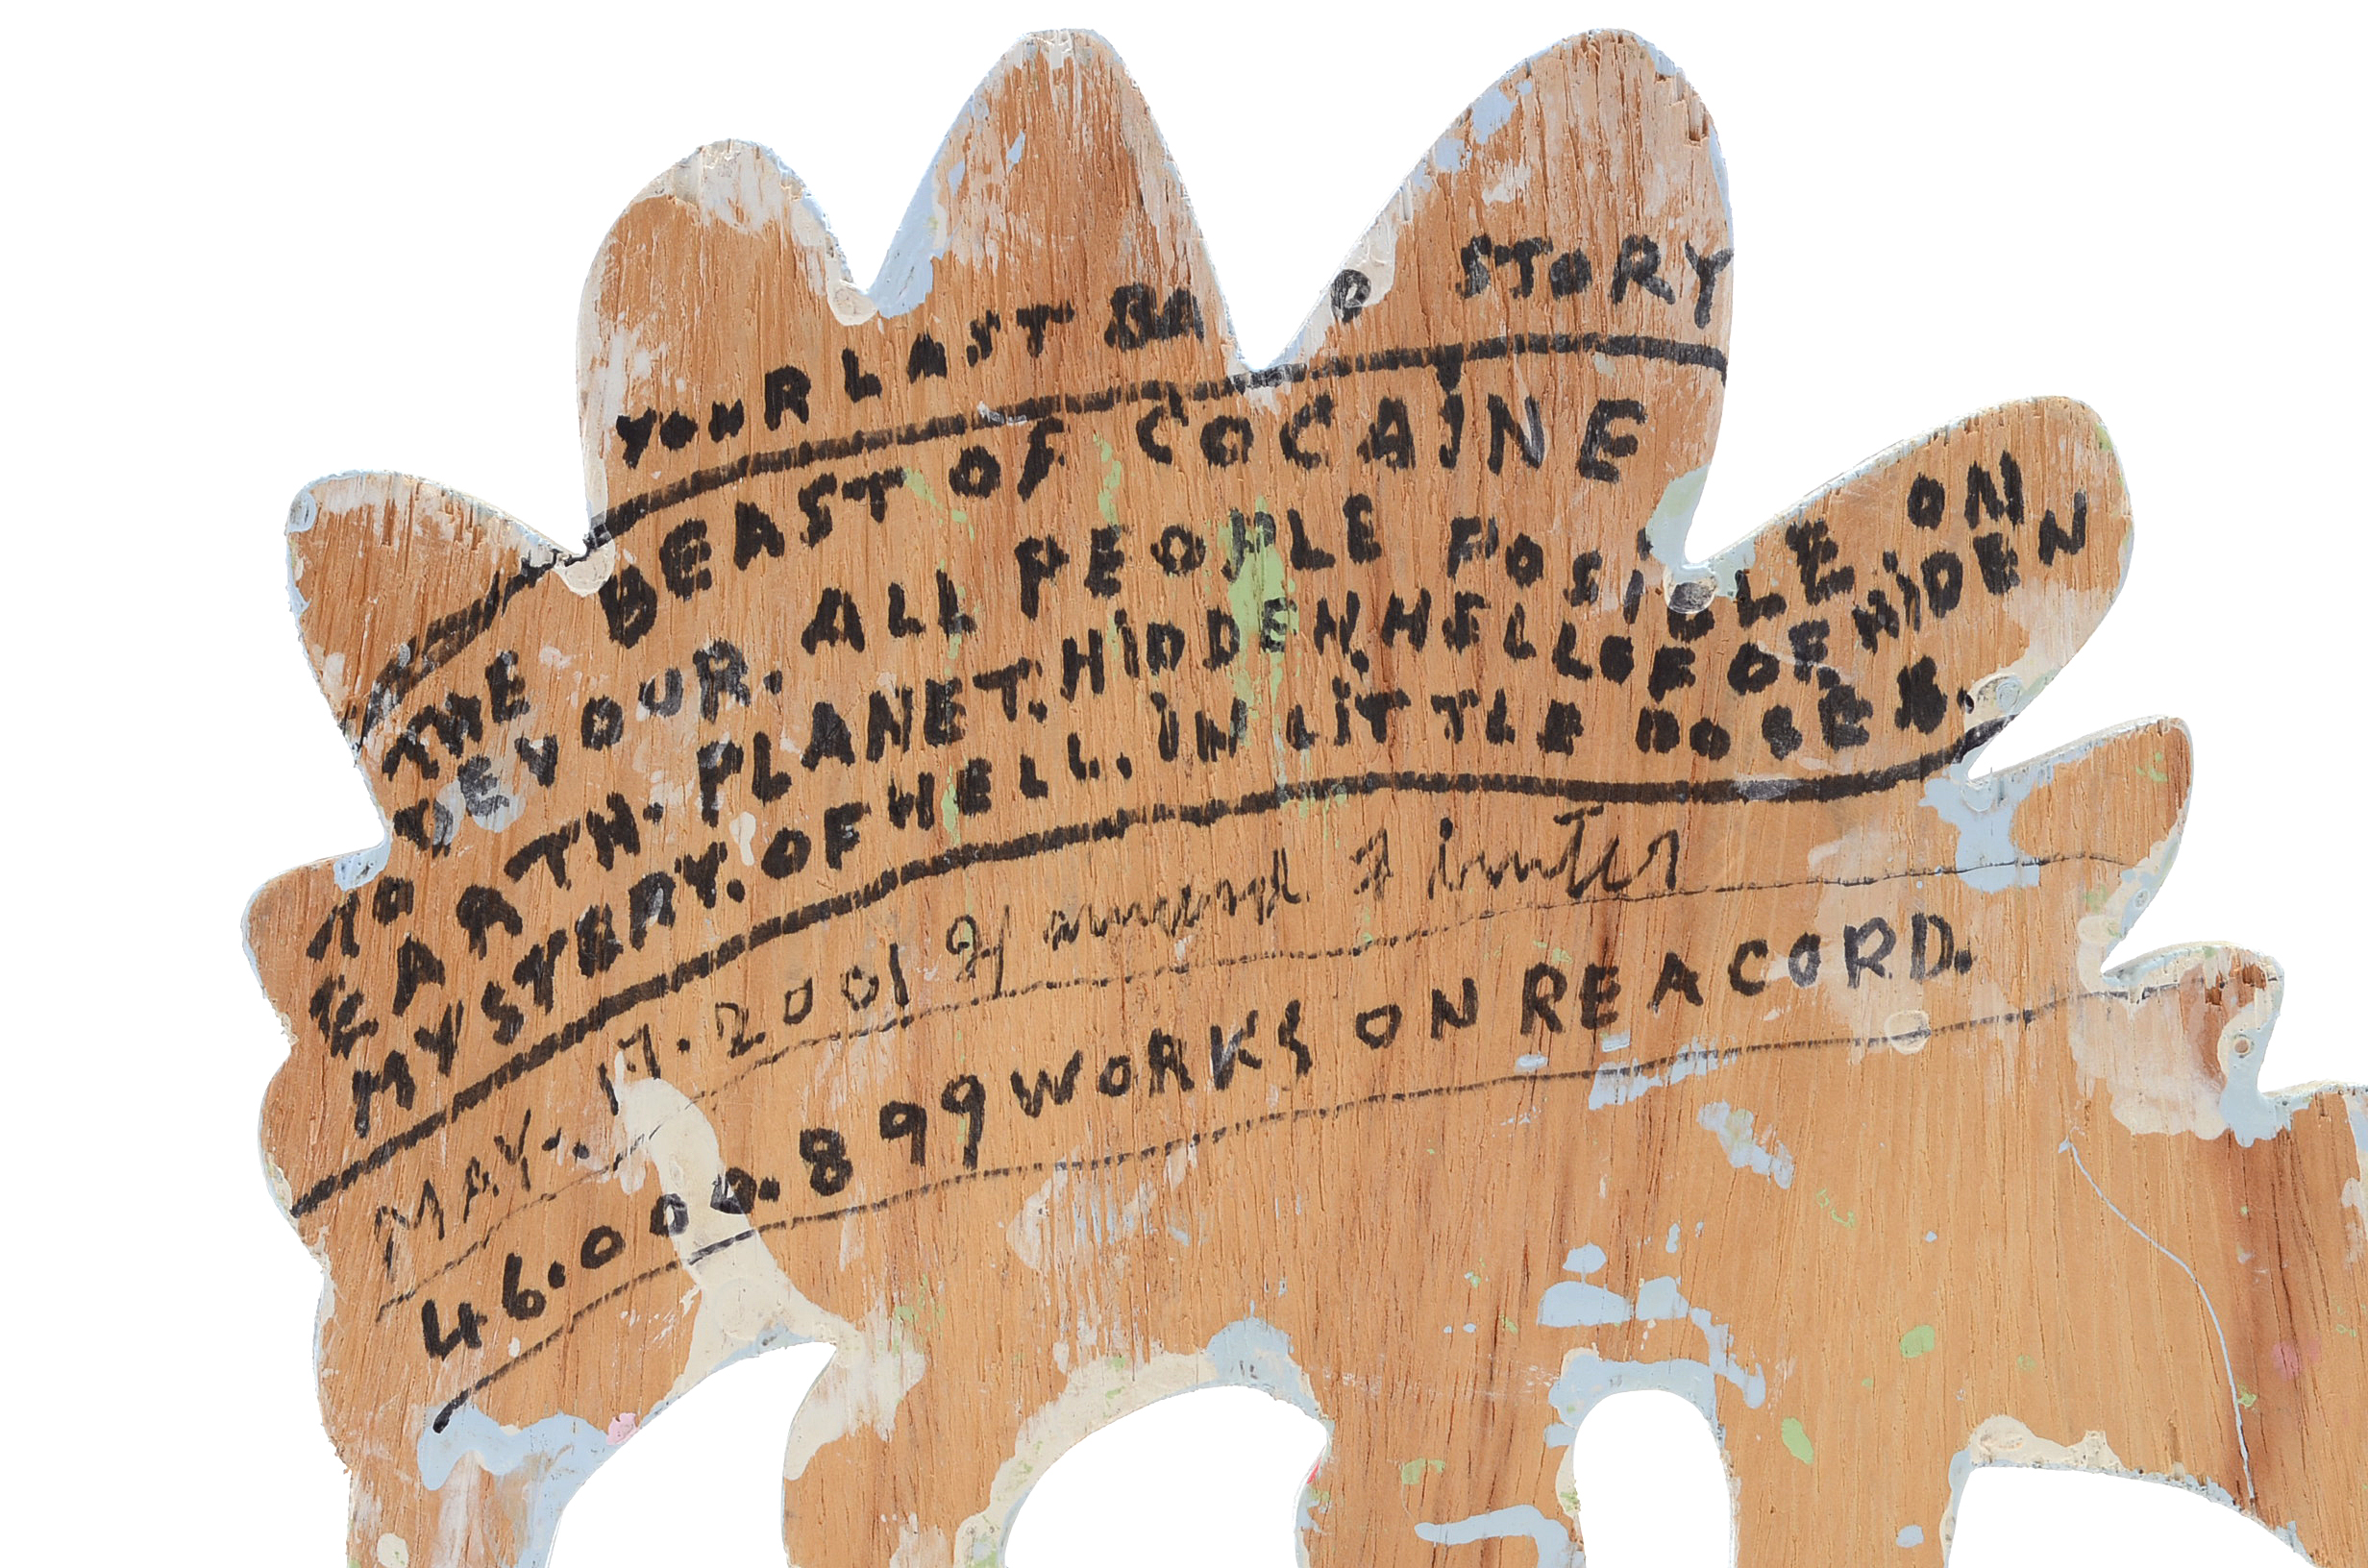 YOUR LAST BAD STORY
THE BEAST OF COCAINE
TO DEVOUR. ALL PEOPLE POSIBLE ON
EARTH. PLANET. HIDDEN. HELL OF HIDEN
MYSTERY. OF HELL. IN LITTLE DOSES.
MAY. 17. 2001
46.000.899 WORKS ON REACORD.